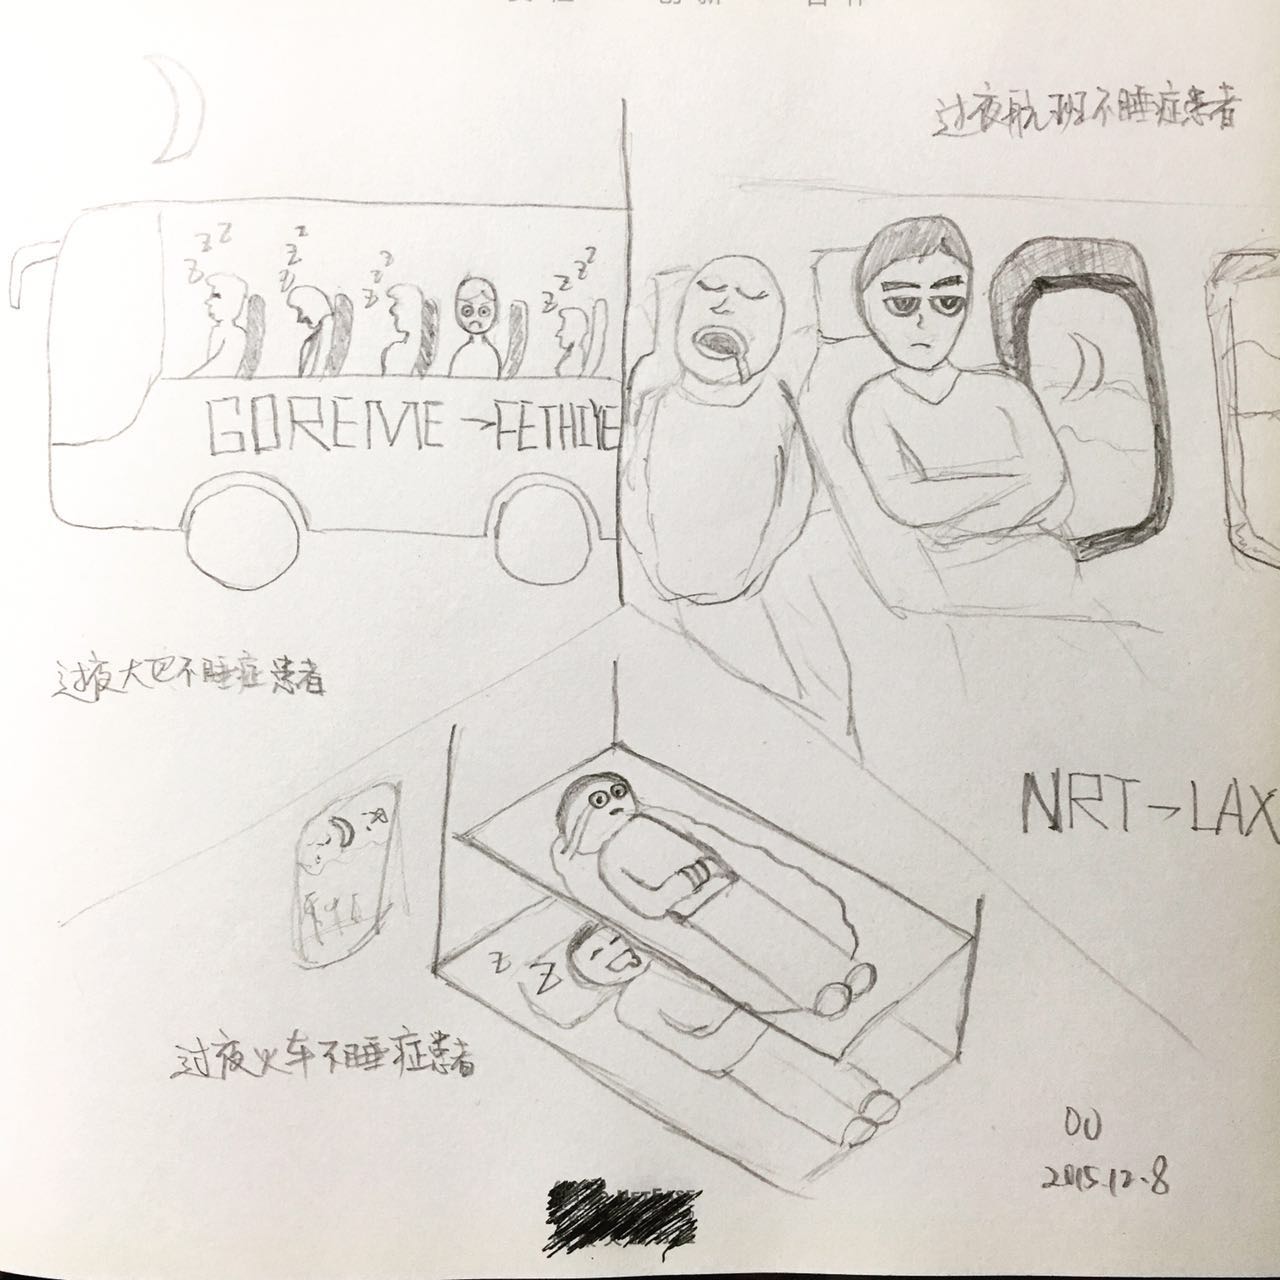 过夜航班不睡症患者
z z z
z z z
z z z
z z z
GOREME→FETHIYE
过夜大巴不睡症患者
NRT→LAX
z z
过夜火车不睡症患者
DU
2015.12.8